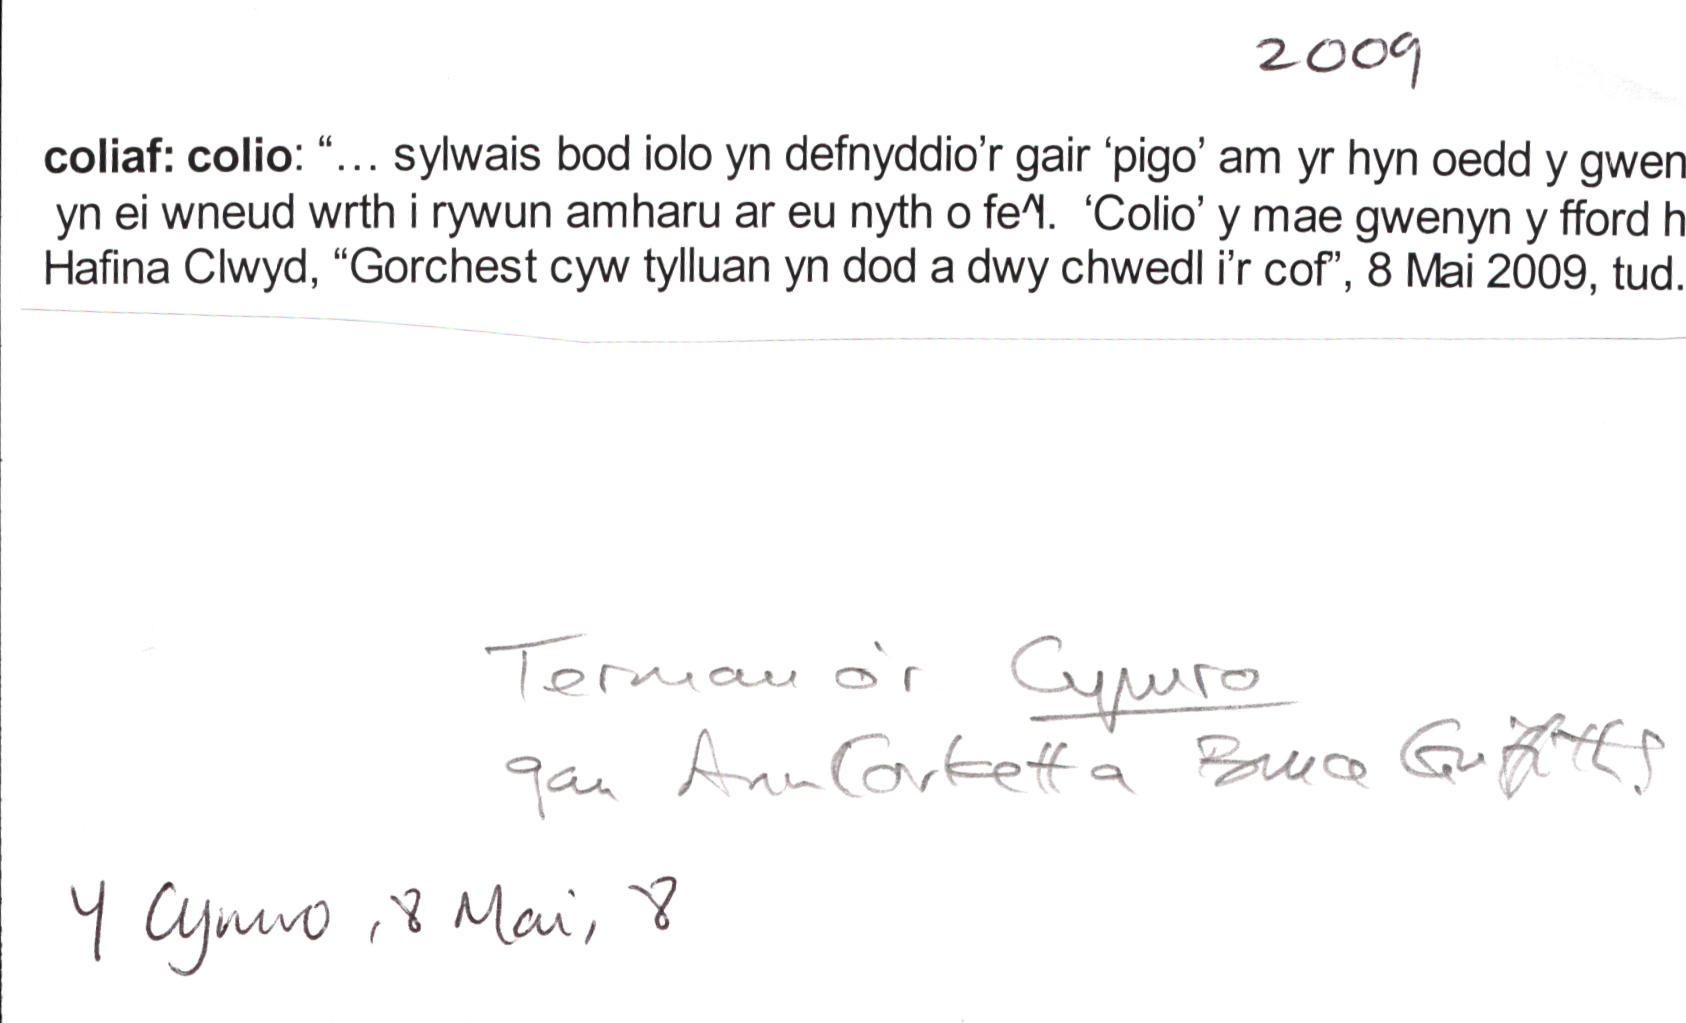 2009
coliaf: colio: “… sylwais bod iolo yn defnyddio’r gair ‘pigo’ am yr hyn oedd y gwen
yn ei wneud wrth i rywun amharu ar eu nyth o fe^l. ‘Colio’ y mae gwenyn y ffordd h
Hafina Clwyd, “Gorchest cyw tylluan yn dod a dwy chwedl i’r cof”, 8 Mai 2009, tud.
Termau o'r Cymro
gan Ann Corkett a Bruce Griffiths
Y Cymro, 8 Mai, 8